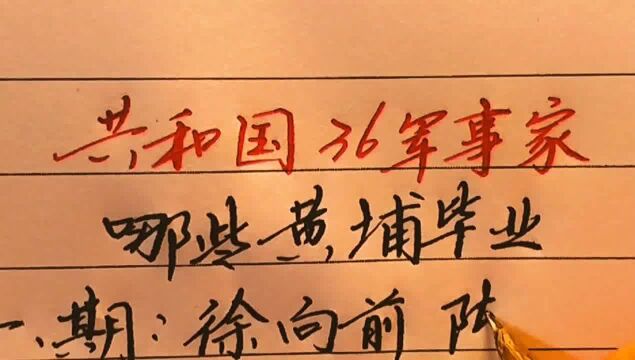 共和国36军事家
哪些黄埔毕业
一期：徐向前